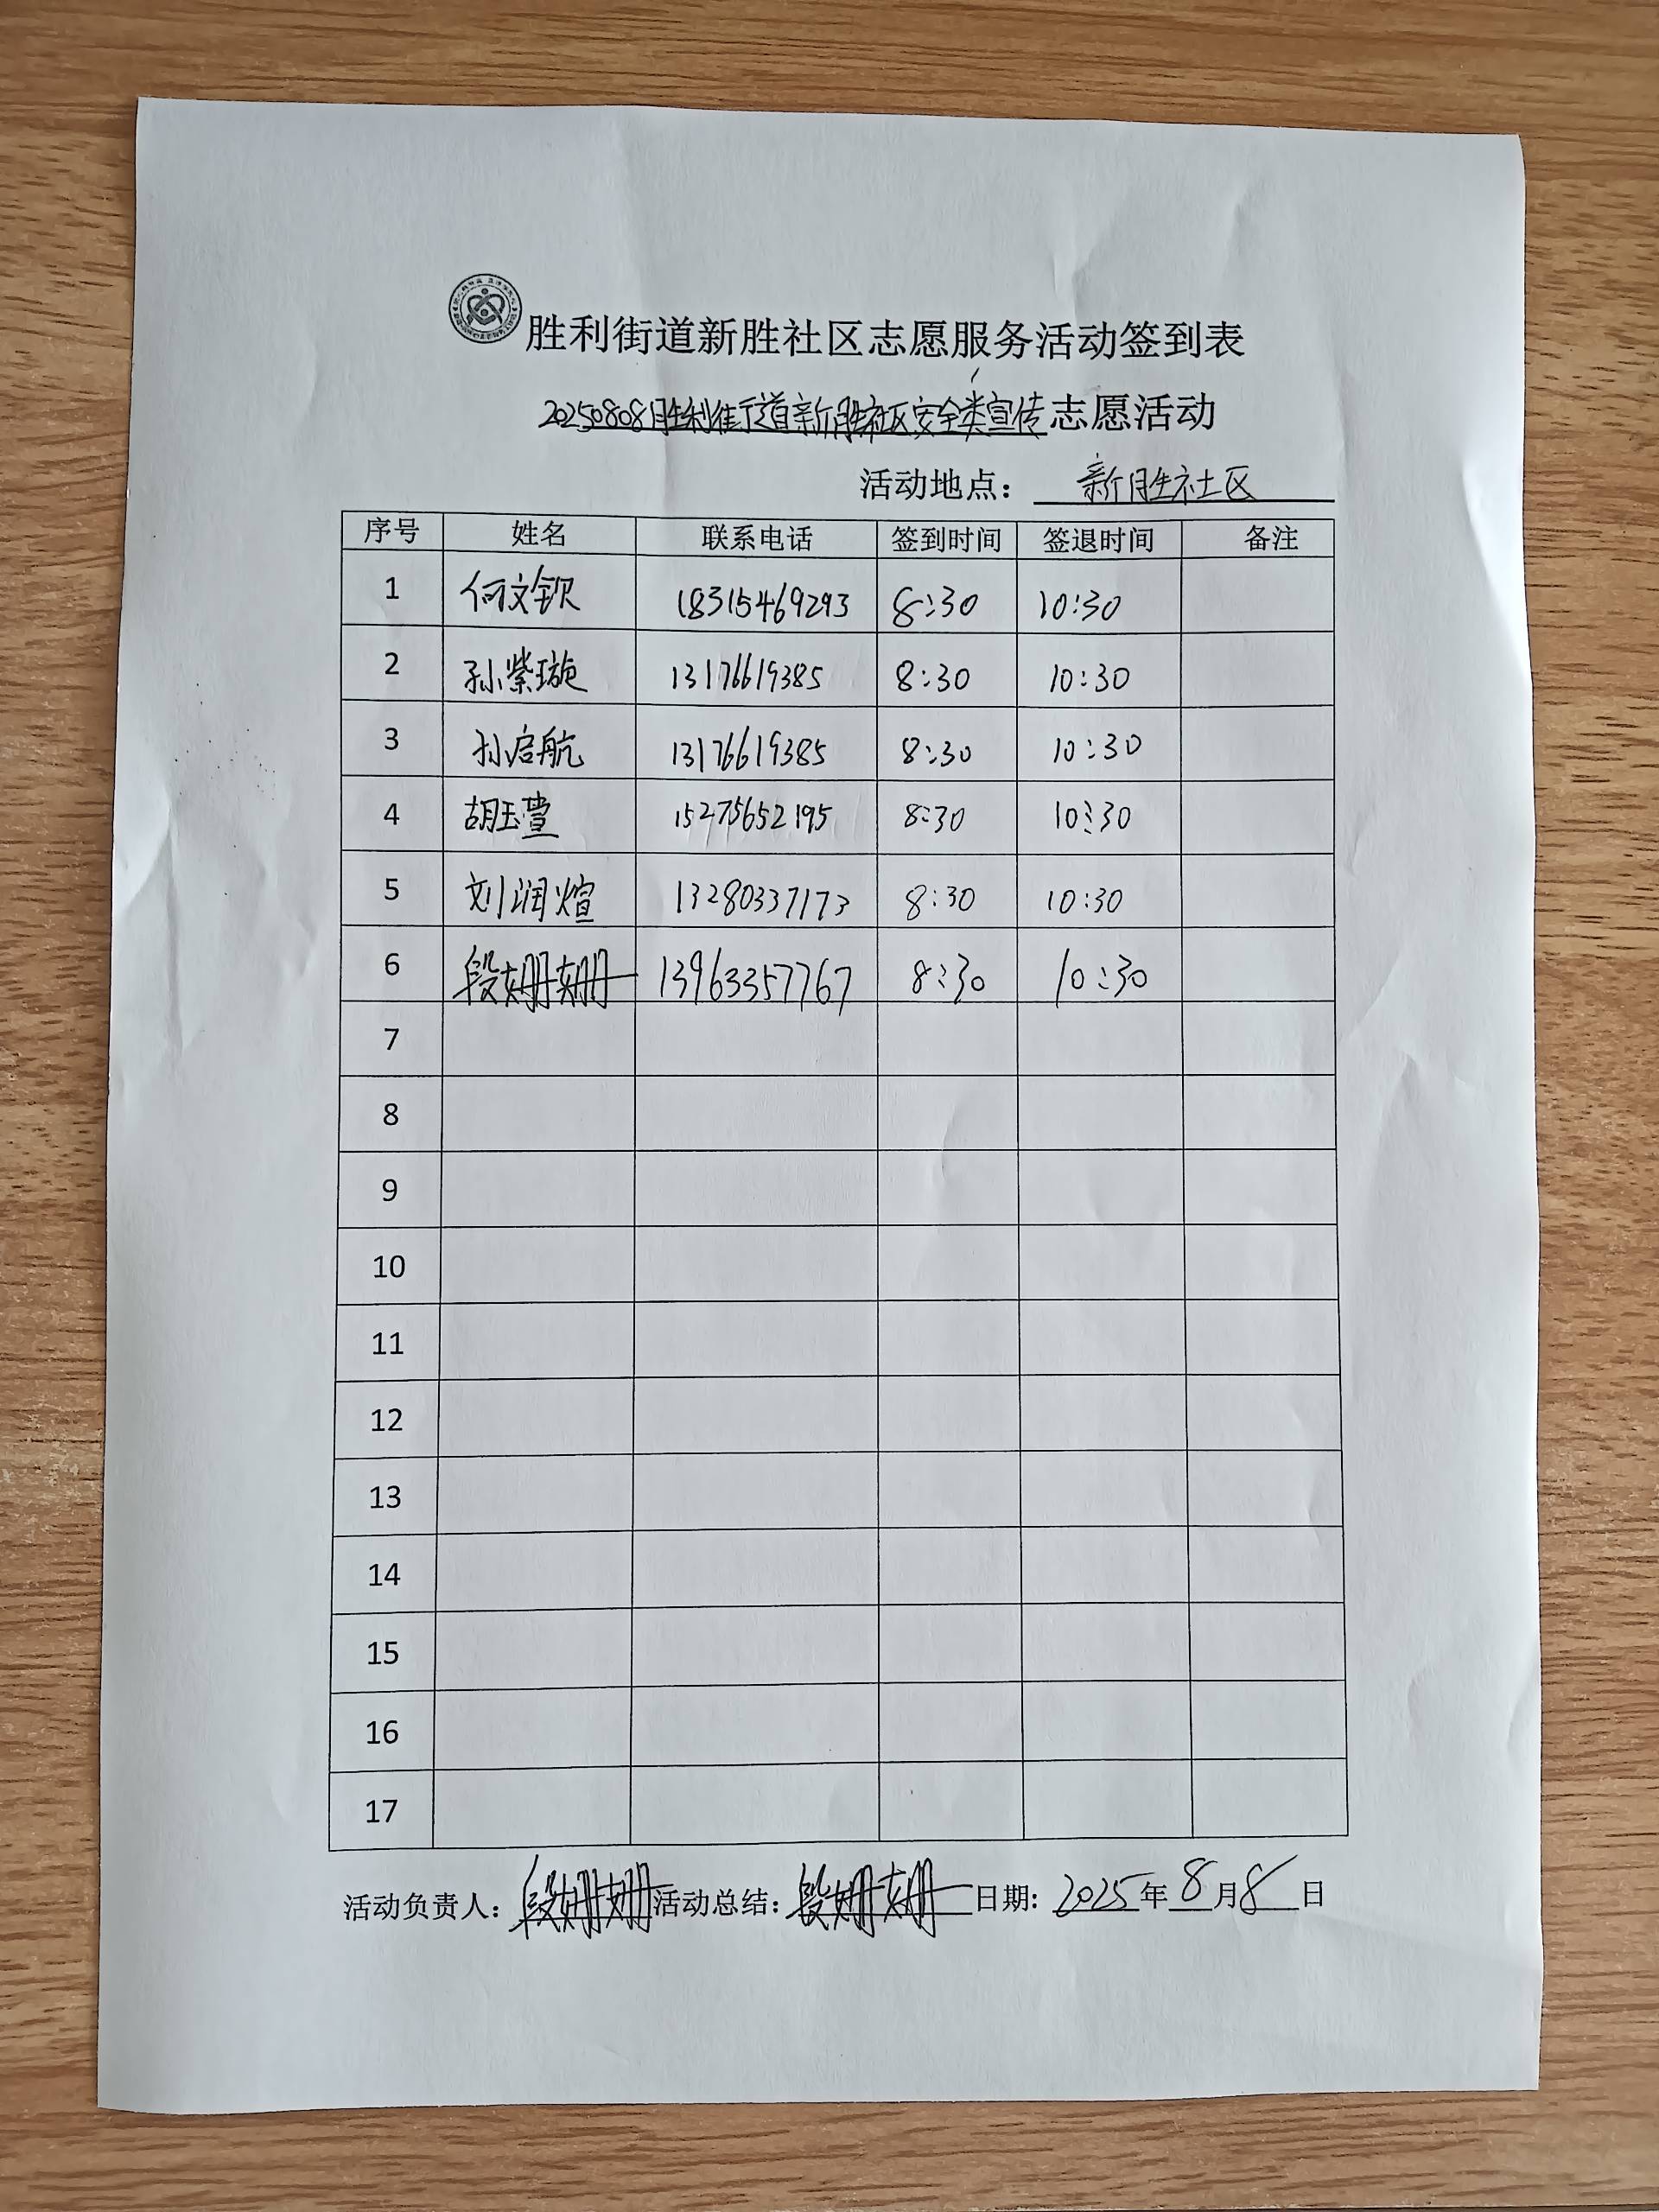 胜利街道新胜社区志愿服务活动签到表
20250808胜利街道新胜社区安全类宣传志愿活动
活动地点： 新胜社区
序号 姓名 联系电话 签到时间 签退时间 备注
1 何文钦 18315469293 8:30 10:30
2 孙紫璇 13176619385 8:30 10:30
3 孙启航 13176619385 8:30 10:30
4 胡玉萱 15275652195 8:30 10:30
5 刘润煊 13280337173 8:30 10:30
6 段姗姗 13963357767 8:30 10:30
7
8
9
10
11
12
13
14
15
16
17
活动负责人：段姗姗 活动总结：段姗姗 日期：2025年8月8日